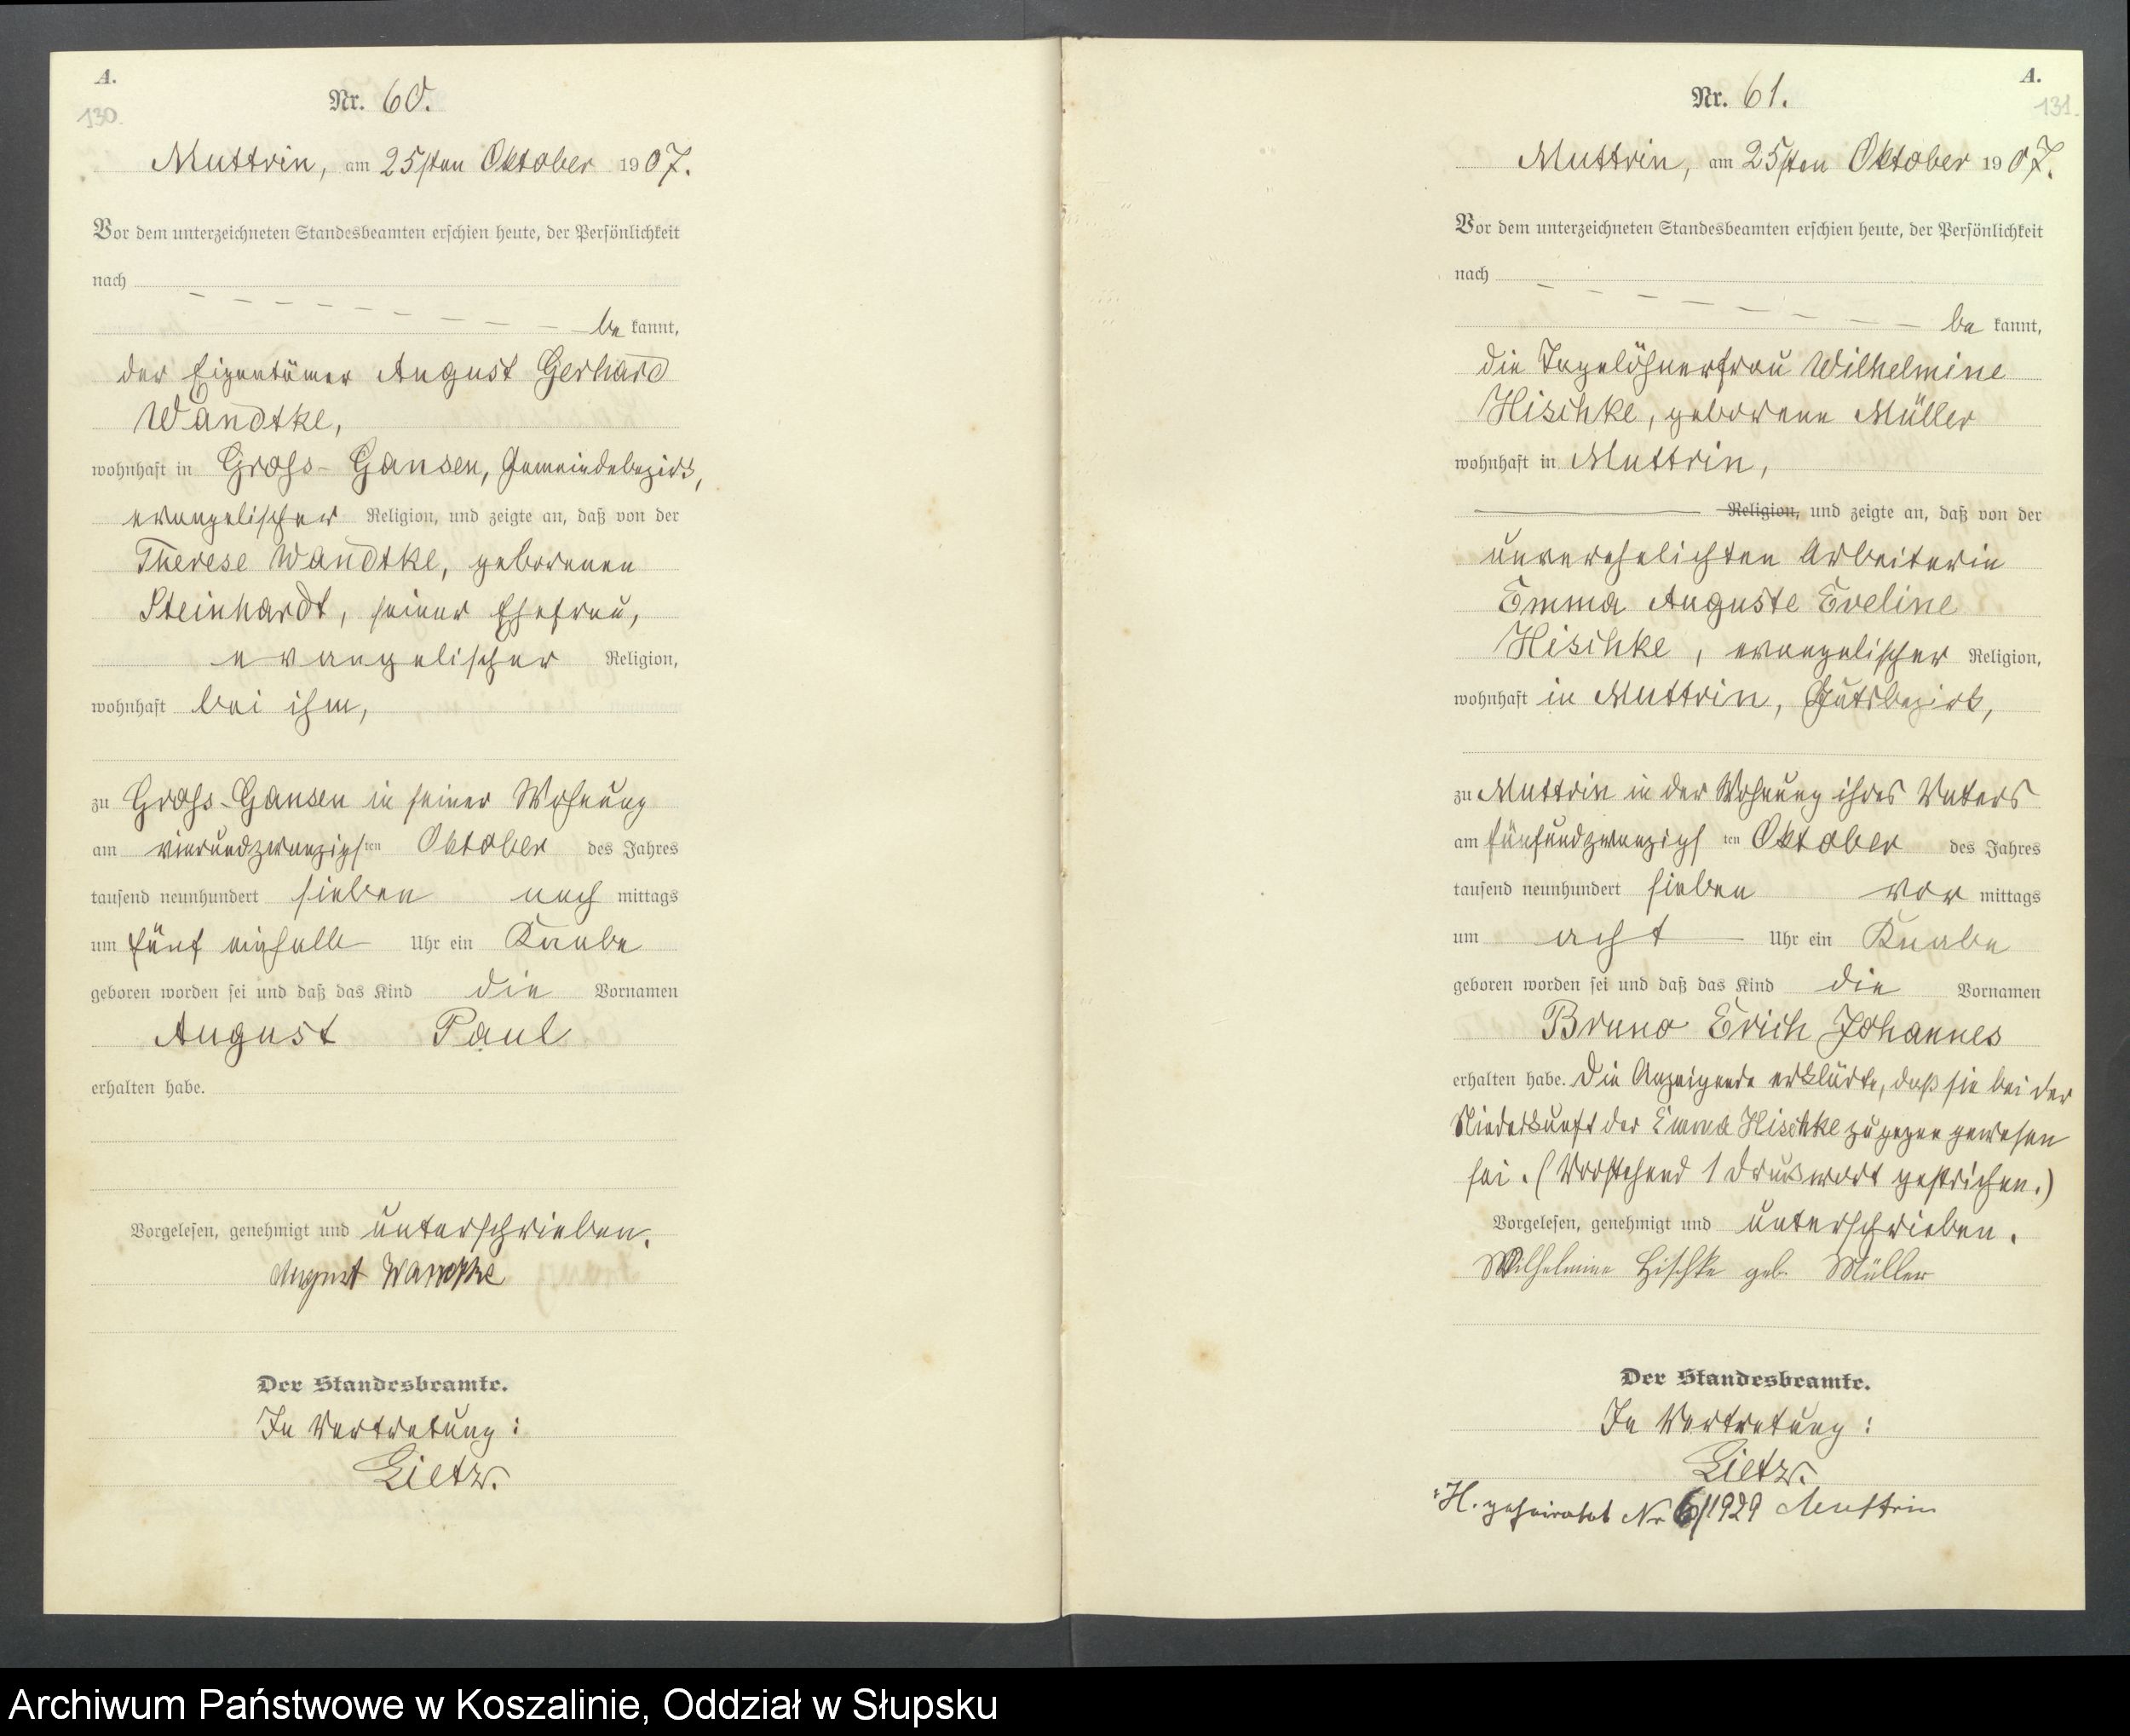 A.
130.
Nr. 60.
Muttrin, am 25sten Oktober 1907.
Vor dem unterzeichneten Standesbeamten erschien heute, der Persönlichkeit
nach
be kannt,
der Eigentümer August Gerhard
Wandtke,
wohnhaft in Gross-Gansen, Gemeindebezirk,
evangelischer Religion, und zeigte an, daß von der
Therese Wandtke, geborenen
Steinhardt, seiner Ehefrau,
evangelischer Religion,
wohnhaft bei ihm,
zu Gross-Gansen in seiner Wohnung
am vierundzwanzigsten Oktober des Jahres
tausend neunhundert sieben nach mittags
um fünf einhalb Uhr ein Knabe
geboren worden sei und daß das Kind die Vornamen
August Paul
erhalten habe.
Vorgelesen, genehmigt und unterschrieben.
August Wandtke
Der Standesbeamte.
In Vertretung:
Lietz.
A.
131.
Nr. 61.
Muttrin, am 25sten Oktober 1907.
Vor dem unterzeichneten Standesbeamten erschien heute, der Persönlichkeit
nach
be kannt,
die Tagelöhnerfrau Wilhelmine
Hischke, geborene Müller
wohnhaft in Muttrin,
Religion, und zeigte an, daß von der
unverehelichten Arbeiterin
Emma Auguste Eveline
Hischke, evangelischer Religion,
wohnhaft in Muttrin, Gutsbezirk,
zu Muttrin in der Wohnung ihres Vaters
am fünfundzwanzigsten Oktober des Jahres
tausend neunhundert sieben vor mittags
um acht Uhr ein Knabe
geboren worden sei und daß das Kind die Vornamen
Bruno Erich Johannes
erhalten habe. Die Anzeigende erklärte, daß sie bei der
Niederkunft der Emma Hischke zugegen gewesen
sei. (Vorstehend 1 Druckwort gestrichen.)
Vorgelesen, genehmigt und unterschrieben.
Wilhelmine Hischke geb. Müller
Der Standesbeamte.
In Vertretung:
Lietz.
H. geheiratet Nr 6/1929 Muttrin
Archiwum Państwowe w Koszalinie, Oddział w Słupsku